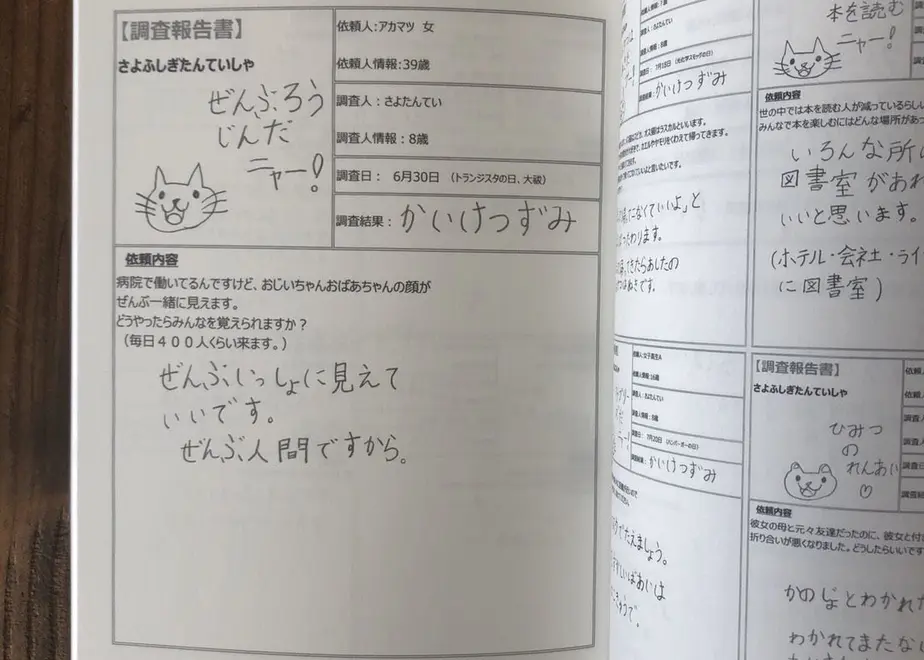 【調査報告書】
さよふしぎたんていしゃ
ぜんぶろう
じんだ
ニャー!
依頼人:アカマツ 女
依頼人情報:39歳
調査人:さよたんてい
調査人情報:8歳
調査日: 6月30日 (トランジスタの日、大祓)
調査結果:かいけつずみ
依頼内容
病院で働いてるんですけど、おじいちゃんおばあちゃんの顔が
ぜんぶ一緒に見えます。
どうやったらみんなを覚えられますか?
(毎日400人くらい来ます。)
ぜんぶいっしょに見えて
いいです。
ぜんぶ人間ですから。
調査人:さよたんてい
調査人情報:8歳
調査結果:かいけつずみ
くていいよ」と
つたわります。
てきたらあしたの
依頼人:女子高生A
依頼人情報:16歳
調査人:さよたんてい
調査人情報:8歳
調査日: 7月20日 (ハンバーガーの日)
調査結果:かいけつずみ
でたえましょう。
ばあいは
本を読む
ニャー!
依頼内容
世の中では本を読む人が減っているらしい
みんなで本を楽しむにはどんな場所があっ
いろんな所に
図書室があれ
いいと思います。
(ホテル・会社・ライ
に図書室)
【調査報告書】
さよふしぎたんていしゃ
ひみつ
の
れんあい
依頼
調査
調査
調査結
依頼内容
彼女の母と元々友達だったのに、彼女と付け
折り合いが悪くなりました。どうしたらいいです
かのじょとわかれた
わかれてまたな